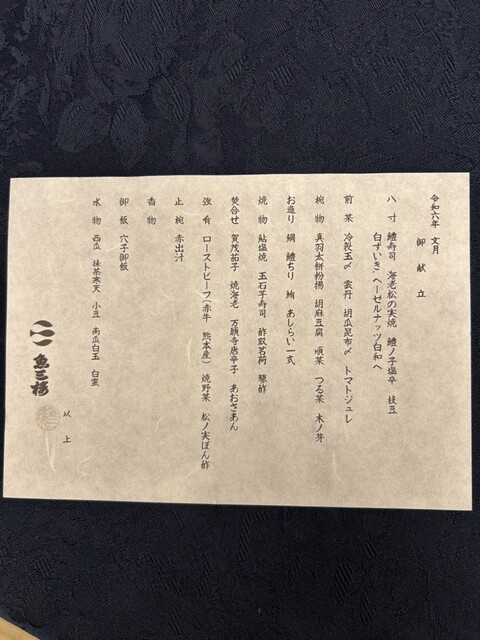 令和六年 文月
御献立
八寸 鱧寿司 海老松の実焼 鱧ノ子塩辛 枝豆
白ずいきヘーゼルナッツ白和へ
前菜 冷製玉〆 雲丹 胡瓜昆布〆 トマトジュレ
椀物 真羽太餅粉揚 胡麻豆腐 順菜 つる菜 木ノ芽
お造り 鯛 鱧ちり 鮪 あしらい一式
焼物 鮎塩焼 玉石芋寿司 酢取茗荷 蓼酢
焚合せ 賀茂茄子 焼海老 万願寺唐辛子 あおさあん
強肴 ローストビーフ(赤牛 熊本産) 焼野菜 松ノ実ぽん酢
止椀 赤出汁
香物
御飯 穴子御飯
水物 西瓜 抹茶寒天 小豆 南瓜白玉 白蜜
以上
魚三楼